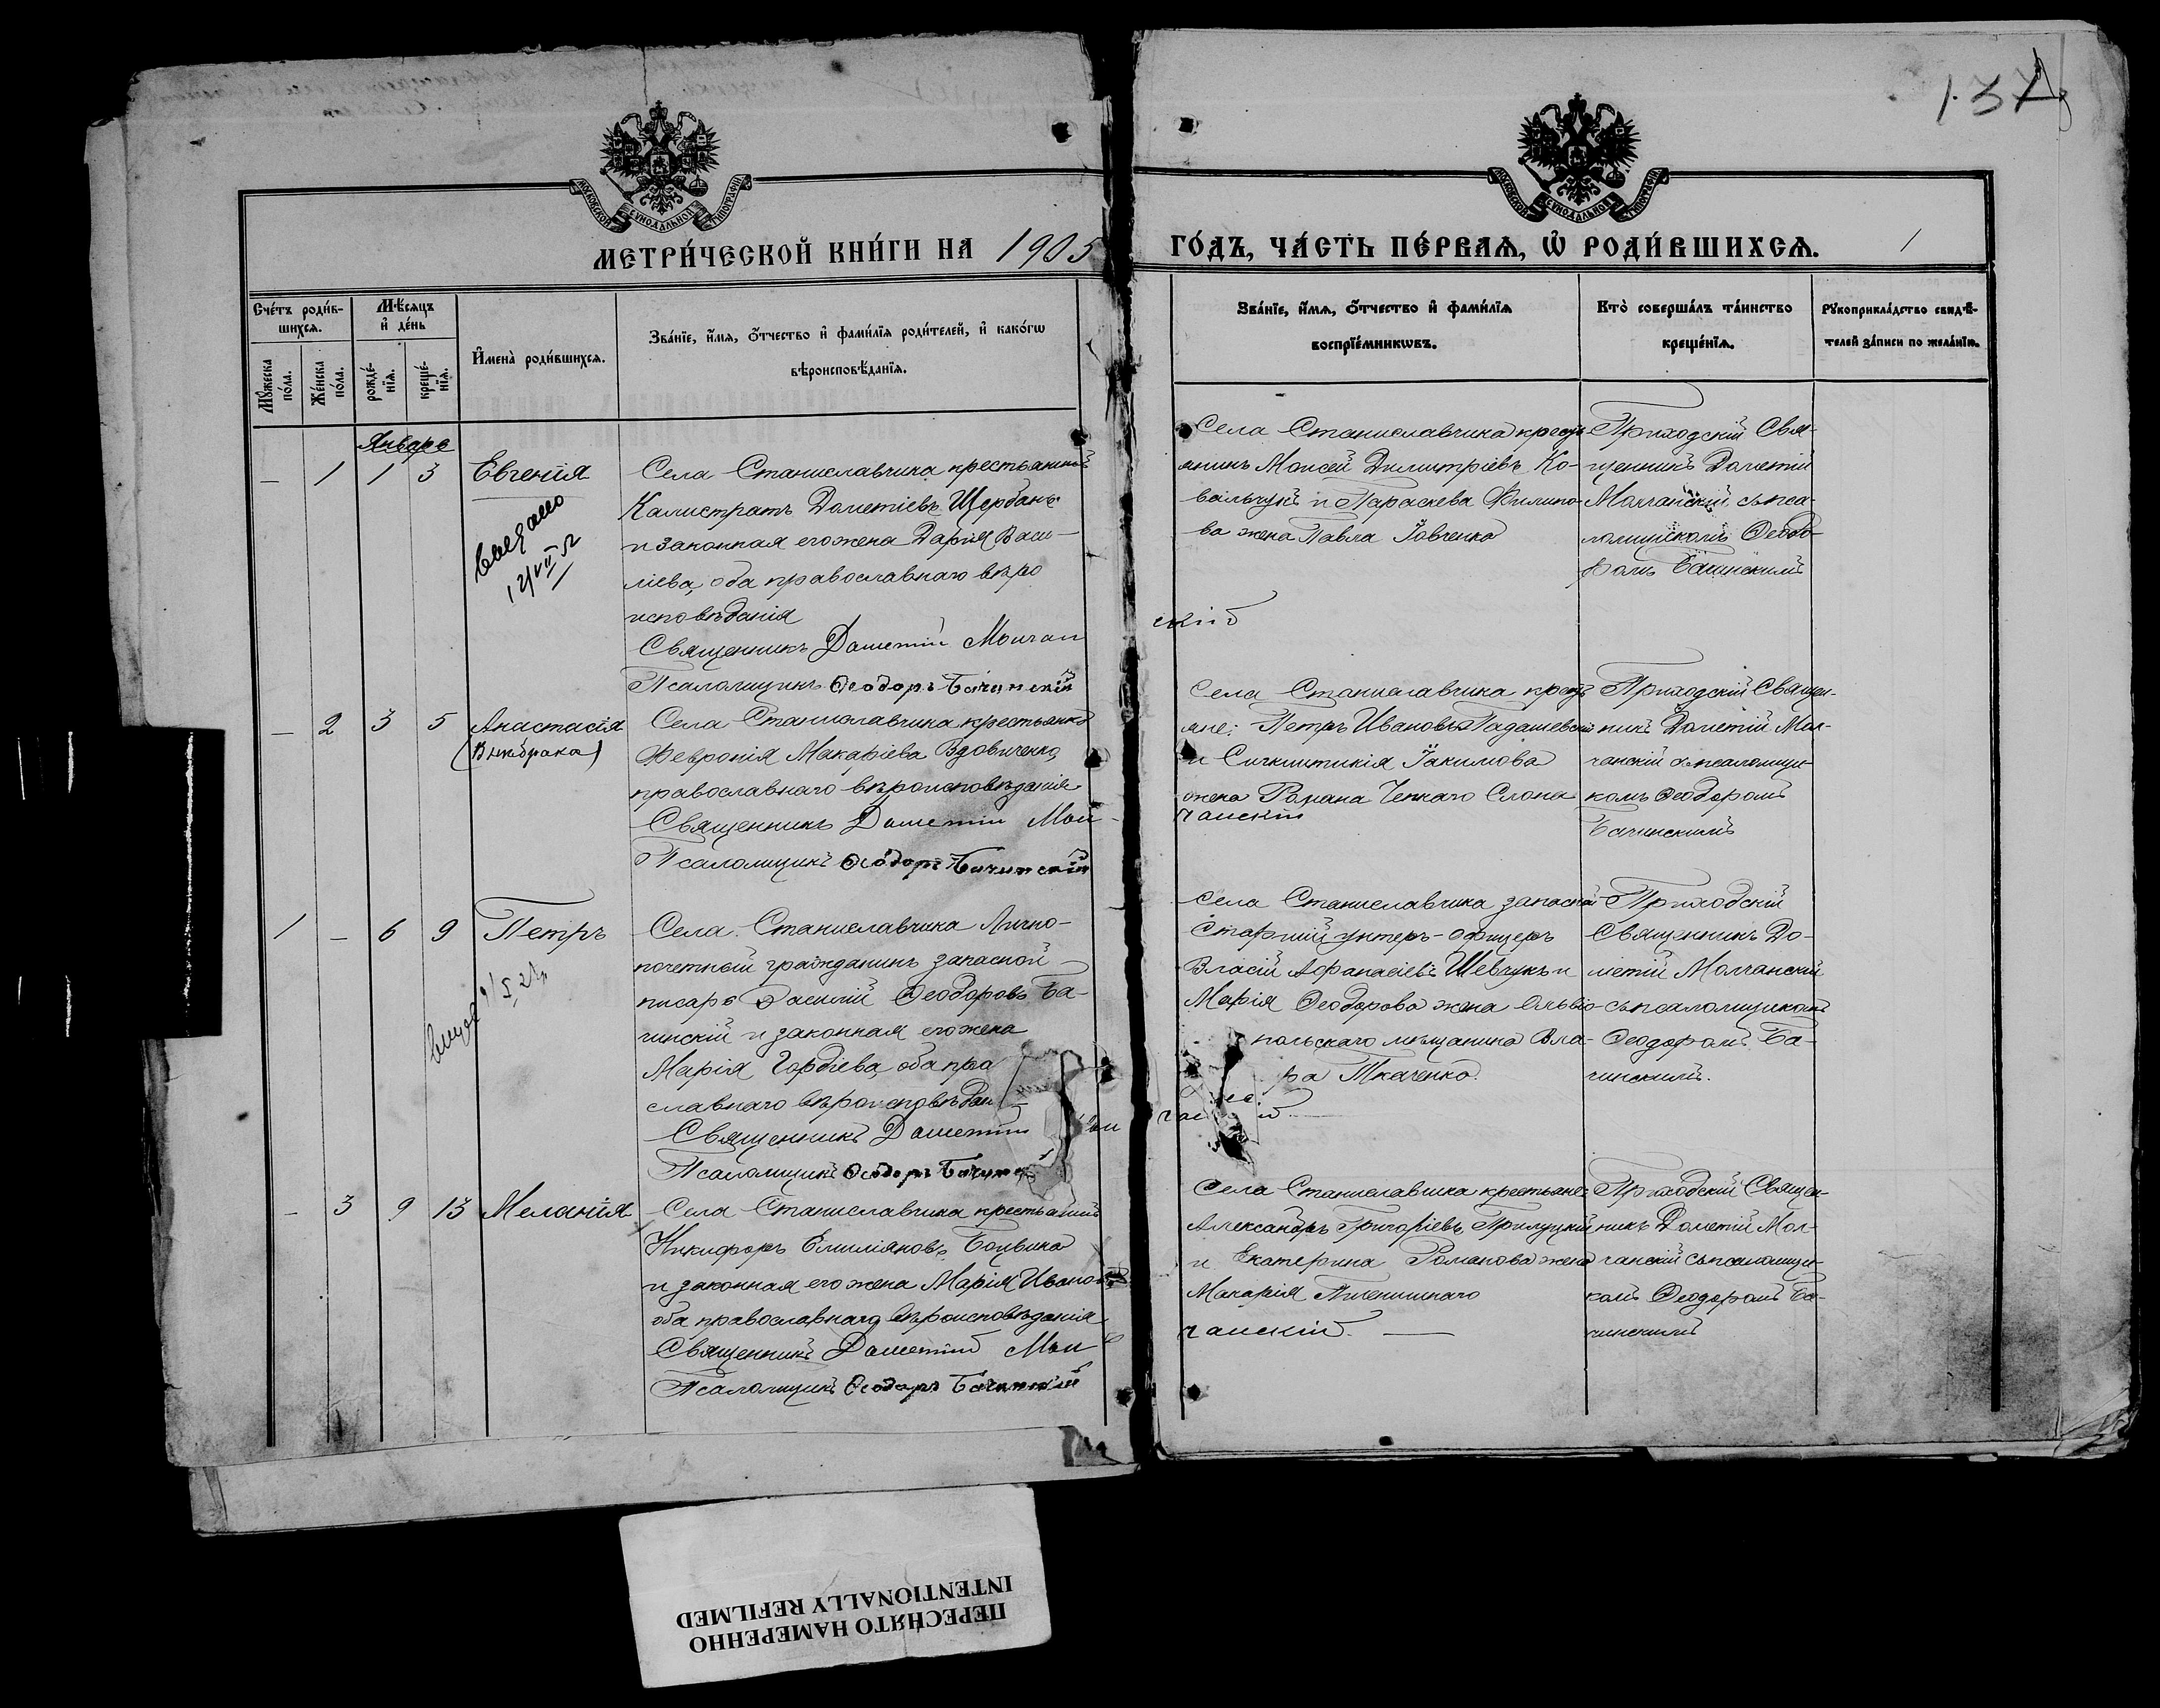 137
МОСКОВСКОЙ СѴНОДАЛЬНОЙ ТИПОГРАФІИ
МОСКОВСКОЙ СѴНОДАЛЬНОЙ ТИПОГРАФІИ
МЕТРИ́ЧЕСКОЙ КНИ́ГИ НА 1905
ГО́ДЪ, ЧА́СТЬ ПЕ́РВАѦ, Ѡ҆ РОДИ́ВШИХСѦ. 1
Сче́тъ роди́в-
шихсѧ.
Мꙋ́жеска
по́ла.
Же́нска
по́ла.
Мѣ́сѧцъ
и҆ де́нь
рожде́-
нїѧ.
креще́-
нїѧ.
И҆мена̀ роди́вшихсѧ.
Зва́нїе, и҆́мѧ, ѻ҆́тчество и҆ фами́лїѧ роди́телей, и҆ како́гѡ
вѣроисповѣ́данїѧ.
Зва́нїе, и҆́мѧ, ѻ҆́тчество и҆ фами́лїѧ
воспрїе́мникѡвъ.
Кто̀ соверша́лъ та́инство
креще́нїѧ.
Рꙋкоприкла́дство свидѣ́-
телей за́писи по жела́нїю.
Январь
— 1 1 3 Евгенія
Села Станиславчика крестьянинъ
Калистратъ Дометіевъ Щербань
и законная его жена Дарія Васи-
ліева, оба православнаго вѣро
исповѣданія
Священникъ Дометій Молчан
Псаломщикъ Ѳеодоръ Бачинскій
Села Станиславчика кресть
янинъ Моисей Димитріевъ Ко-
вальчукъ и Параскева Филипо-
ва жена Павла Іовченко
скій
Приходскій Свя-
щенникъ Дометій
Молчанскій съ пса-
ломщикомъ Ѳеодо-
ромъ Бачинскимъ
— 2 3 5 Анастасія
(Внѣбрака)
Села Станиславчика крестьянка
Февронія Макаріева Вдовиченко,
православнаго вѣроисповѣданія
Священникъ Дометій Мол
Псаломщикъ Ѳеодоръ Бачинскій
Села Станиславчика кресть
яне: Петръ Ивановъ
и Синклитикія Іакимова
жена Романа Слона
чанскій
Приходскій Священ-
никъ Дометій Мол-
чанскій съ псаломщи-
комъ Ѳеодоромъ
Бачинскимъ
1 — 6 9 Петръ
Села Станиславчика Лично-
почетный гражданинъ запасной
писарь Василій Ѳеодоровъ Ба-
чинскій и законная его жена
Марія Гордіева, оба пра
славнаго вѣроисповѣдан
Священникъ Дометій
Псаломщикъ Ѳеодоръ Бачинс
Села Станиславчика запасной
Старшій унтеръ-офицеръ
Власій Афанасіевъ Шевчукъ и
Марія Ѳеодорова жена Ольвіо-
польскаго мѣщанина Вла-
ра Ткаченко.
Приходскій
Священникъ До-
метій Молчанскій
съ псаломщикомъ
Ѳеодоромъ Ба-
чинскимъ.
— 3 9 13 Меланія
Села Станиславчика крестьянинъ
Никифоръ Емиліановъ Боцвина
и законная его жена Марія Иванова
оба православнаго вѣроисповѣданія
Священникъ Дометій Мол
Псаломщикъ Ѳеодоръ Бачинскій
Села Станиславчика крестьяне:
Александръ Григоріевъ Прилуцкій
и Екатерина Романова жена
Макарія Пшеничнаго
чанскій.
Приходскій Священ-
никъ Дометій Мол-
чанскій съ псаломщи-
комъ Ѳеодоромъ Ба-
чинскимъ
ПЕРЕСНЯТО НАМЕРЕННО
INTENTIONALLY REFILMED